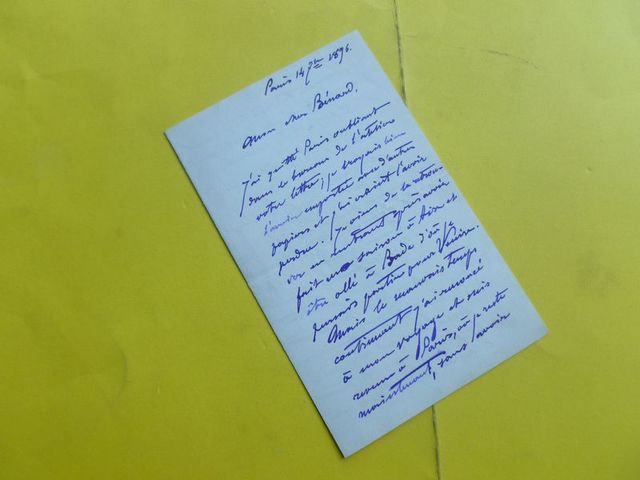 Paris 14 7bre 1896.
Mon cher Bénard,
J'ai quitté Paris oubliant
dans le bureau de l'atelier
votre lettre; je croyais bien
l'avoir emportée avec d'autres
papiers et j'ai craint l'avoir
perdue. Je viens de la retrou-
ver en rentrant après avoir
fait une saison à Aix et
être allé à Bade d'où je
devais partir pour Venise.
Mais le mauvais temps
continuant j'ai renoncé
à mon voyage et suis
revenu à Paris, où je reste
maintenant, sans avoir